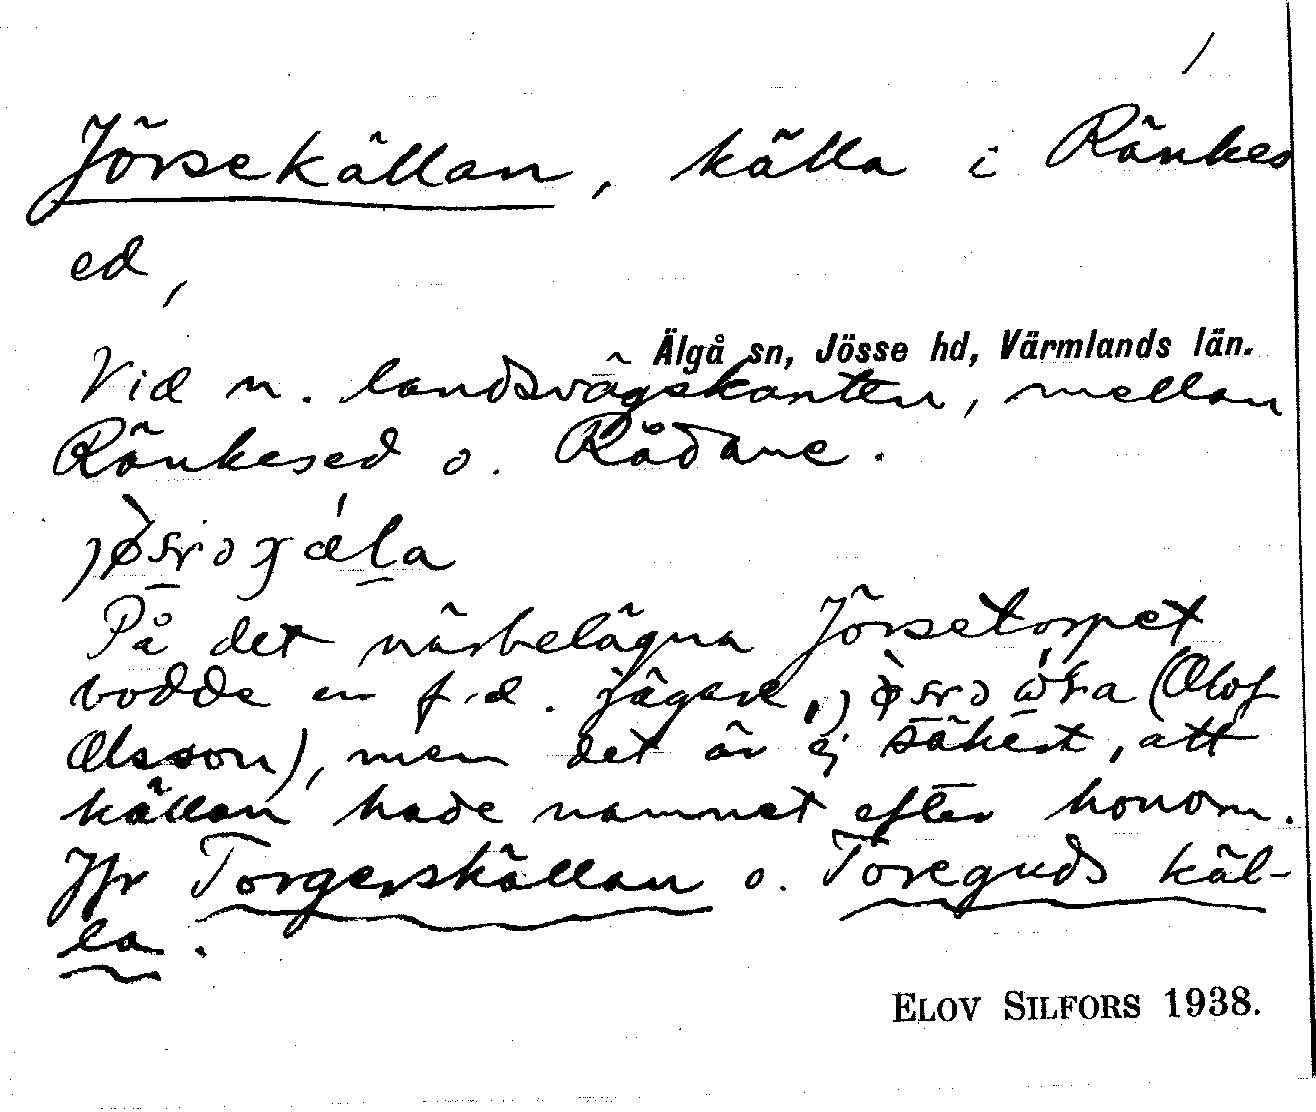 /
Jörsekällan, källa i Ränkes
ed,
Älgå sn, Jösse hd, Värmlands län.
Vid n. landsvägskanten, mellan
Ränkesed o. Rådane.
På det närbelägna Jörsetorpet
bodde en f.d. jägare, (Olof
Olsson), men det är ej säkert, att
källan hade namnet efter honom.
Jfr Torgerskällan o. Toreguds käl-
la.
ELOV SILFORS 1938.